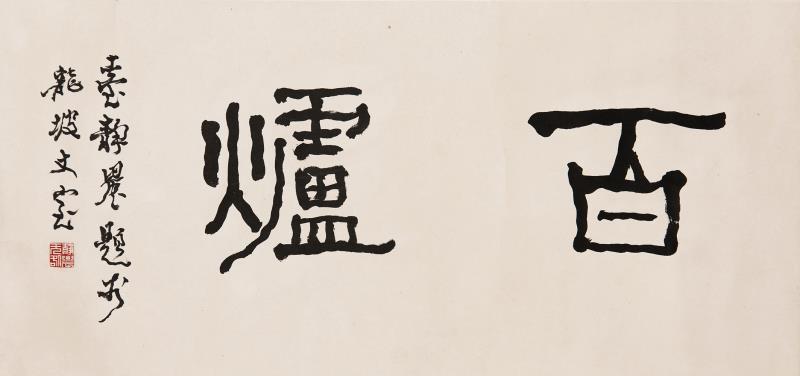 百爐
臺靜農題於
龍坡丈室